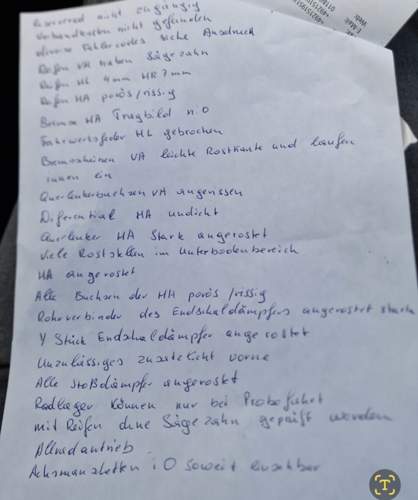 Reserverad nicht zugängig
Verbandkasten nicht gefunden
diverse Fehlercodes siehe Ausdruck
Reifen VA haben Sägezahn
Reifen HL 4mm HR 7mm
Reifen HA porös/rissig
Bremse HA Tragbild n.i.O
Fahrwerksfeder HL gebrochen
Bremsscheiben VA leichte Rostkante und laufen
innen ein
Querlenkerbuchsen VA angerissen
Diferential HA undicht
Querlenker HA stark angerostet
Viele Roststellen im Unterbodenbereich
HA angerostet
Alle Buchsen der HA porös/rissig
Rohrverbinder des Endschaldämpfers angerostet stark
Y Stück Endschaldämpfer angerostet
Unzulässiges zusatzlicht vorne
Alle Stoßdämpfer angerostet
Radlager können nur bei Probefahrt
mit Reifen ohne Sägezahn geprüft werden
Allradantrieb
Achsmanschetten i O soweit
E-Mail:
Web: